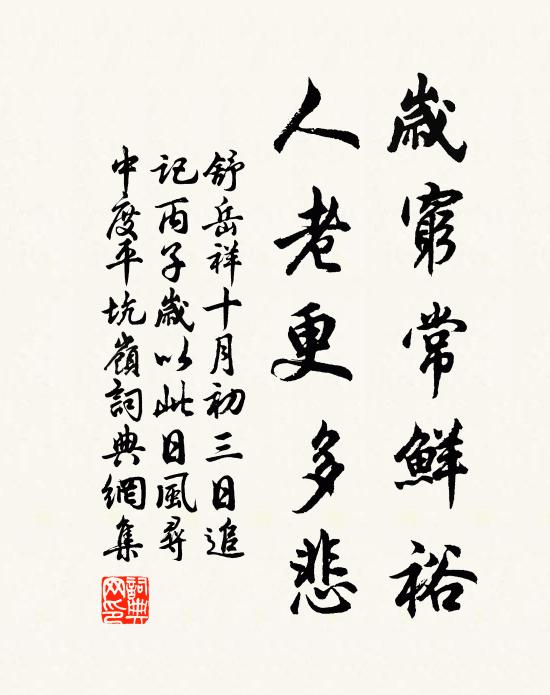 歲窮常鮮裕
人老更多悲
舒岳祥十月初三日追
記丙子歲以此日風尋
中度平坑嶺詞典網集
詞典網印